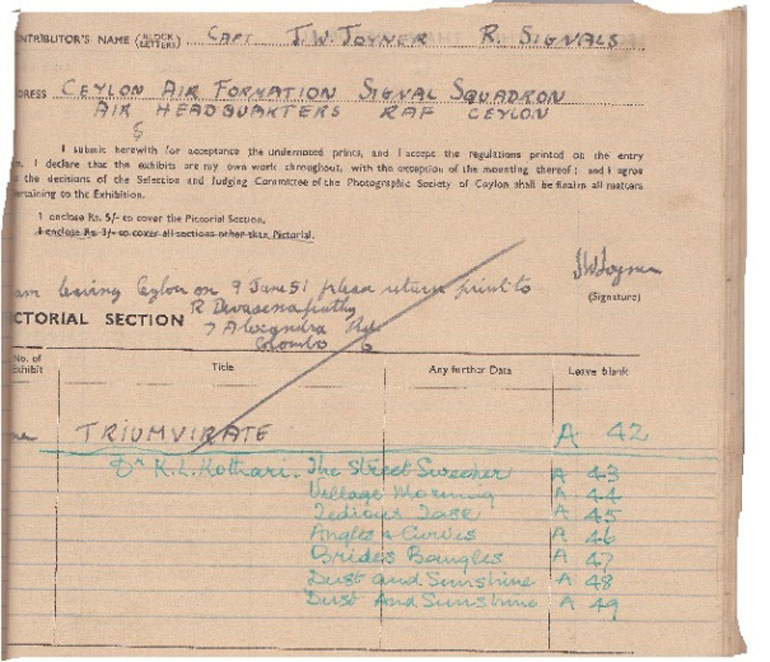 ONTRIBUTOR'S NAME (BLOCK LETTERS) CAPT J.W. JOYNER R. SIGNALS
DRESS CEYLON AIR FORMATION SIGNAL SQUADRON
AIR HEADQUARTERS RAF CEYLON
I submit herewith for acceptance the undernoted prints, and I accept the regulations printed on the entry
m. I declare that the exhibits are my own work throughout, with the exception of the mounting thereof; and I agree
the decisions of the Selection and Judging Committee of the Photographic Society of Ceylon shall be final in all matters
ertaining to the Exhibition.
I enclose Rs. 5/- to cover the Pictorial Section.
I enclose Rs 3/- to cover all sections other than Pictorial.
JWJoyner
am leaving Ceylon on 9 June 51 please return print to
(Signature)
R Devasenapathy
CTORIAL SECTION
7 Alexandra Rd
Colombo 6
No. of Exhibit Title Any further Data Leave blank
TRIUMVIRATE A 42
Dr K.L. Kothari. The Street Sweeper A 43
Village Morning A 44
Tedious Task A 45
Angles & Curves A 46
Brides Bangles A 47
Dust and Sunshine A 48
Dust And Sunshine A 49